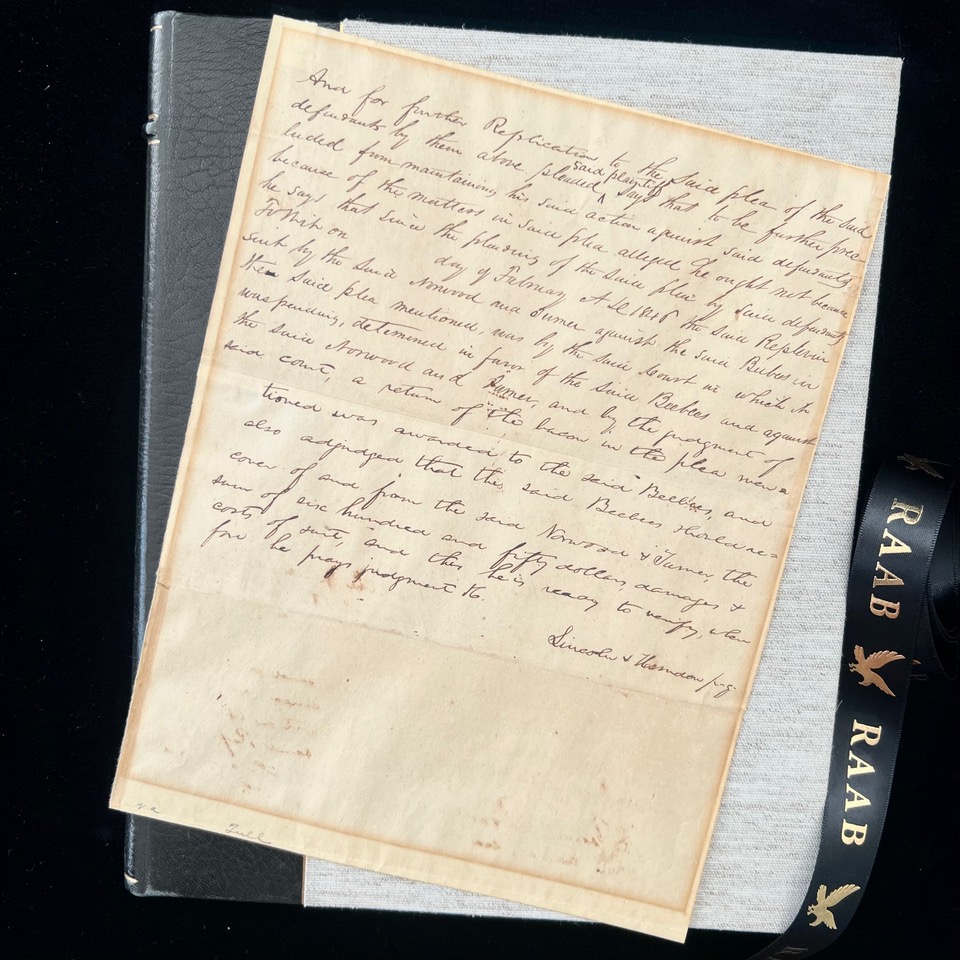 And for further Replication to the Said plea of the said
defendants by them above pleaded
said plaintiff
^ says that to be further prec
luded from maintaining his said action against said defendants
because of the matters in said plea alleged he ought not because
he says that since the pleading of the said plea by said defendants
To Wit on day of February A D 1846 the said Replevin
suit by the said Norwood and Turner against the said Beebes in
the said plea mentioned, was by the said Court in which it
was pending, determined in favor of the said Beebes and against
the said Norwood and Turner, and by the judgment of
said court, a return of the bacon in the plea men=
tioned was awarded to the said Beebes, and
also adjudged that the said Beebes should re=
cover of and from the said Norwood & Turner, the
sum of six hundred and fifty dollars, damages &
costs of suit, and this he is ready to verify, where
fore he prays judgment &c.
Lincoln & Herndon p.q.
Full
RAAB
RAAB